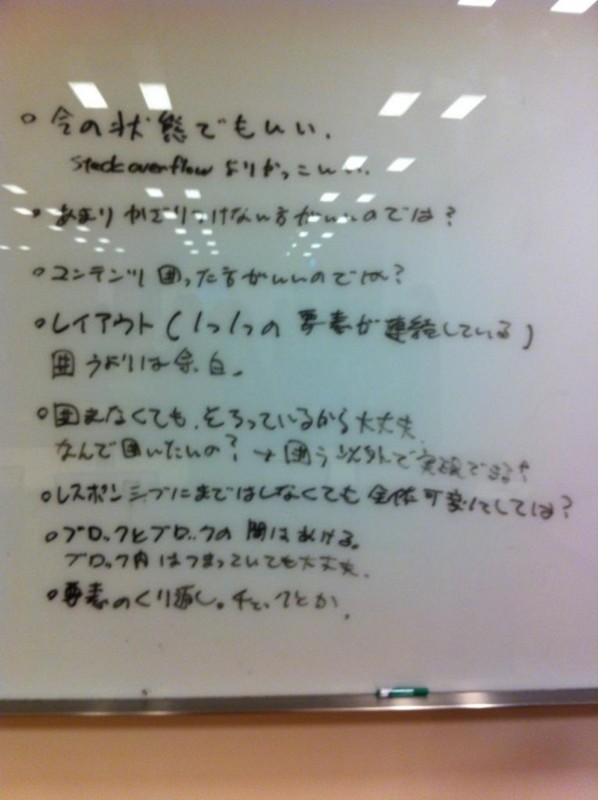 今の状態でもいい.
stack overflow よりかっこいい.
あまり かざりつけない方がいいのでは?
コンテンツ 囲った方がいいのでは?
レイアウト (1つ1つの 要素が 連続している)
囲うよりは余白.
囲まなくても、そろっているから大丈夫.
なんで囲いたいの? → 囲う以外で実現できる?
レスポンシブにまではしなくても 全体可変にしては?
ブロックとブロックの 間はあける.
ブロック内 はつまっていても大丈夫.
要素のくり返し。チェックとか.